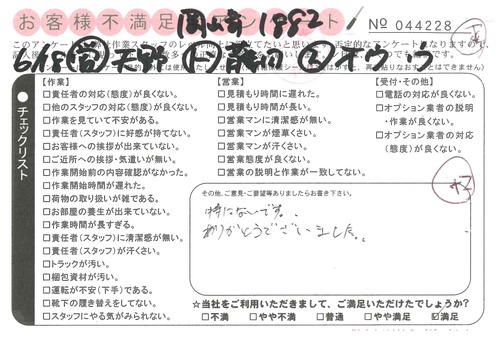 お客様不満足アンケート
岡山南1882
No 044228
このアンケートは
6/18
チェックリスト
【作業】
□責任者の対応(態度)が良くない。
□他のスタッフの対応(態度)が良くない。
□作業を見ていて不安がある。
□責任者(スタッフ)に好感が持てない。
□お客様への挨拶が出来ていない。
□ご近所への挨拶・気遣いが無い。
□作業開始前の内容確認がなかった。
□作業開始時間が遅れた。
□荷物の取り扱いが雑である。
□お部屋の養生が出来ていない。
□作業時間が長すぎる。
□責任者(スタッフ)に清潔感が無い。
□責任者(スタッフ)が汗くさい。
□トラックが汚い。
□梱包資材が汚い。
□運転が不安(下手)である。
□靴下の履き替えをしてない。
□スタッフにやる気がみられない。
【営業】
□見積もり時間に遅れた。
□見積もり時間が長い。
□営業マンに清潔感が無い。
□営業マンが煙草くさい。
□営業マンが汗くさい。
□営業態度が良くない。
□営業の説明と作業が一致してない。
【受付・その他】
□電話の対応が良くない。
□オプション業者の説明
・作業が良くない。
□オプション業者の対応
(態度)が良くない。
その他、ご意見・ご要望等ありましたらお書き下さい。
特にないです。
ありがとうございました。
☆当社をご利用いただきまして、ご満足いただけたでしょうか?
□不満 □やや不満 □普通 □やや満足 ☑満足